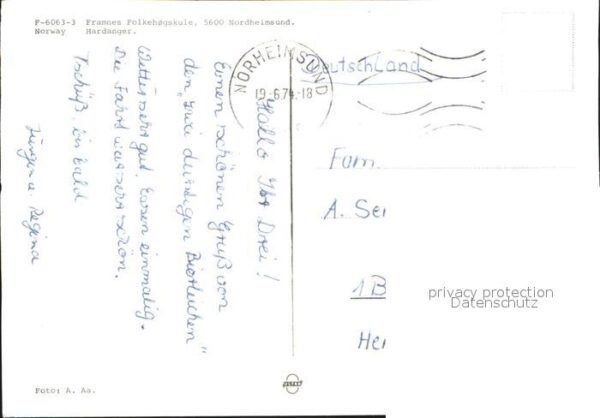 F-6063-3 Framnes Folkehøgskule, 5600 Nordheimsund.
Norway Hardanger.
NORHEIMSUND
19-6.74.-18
Hallo Ihr Drei!
Einen schönen Gruß von
den „zwei durstigen Bierleichen“
Wetter sehr gut. Essen einmalig.
Die Fahrt war sehr schön.
Tschüß, bis bald
Jürgen u. Regina
Deutschland
Fam.
A. Sei
1 B
Hei
privacy protection
Datenschutz
Foto: A. Aa.